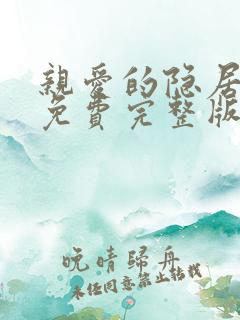 親愛的隐居
免費完整版
晚晴歸舟
未经同意禁止转载